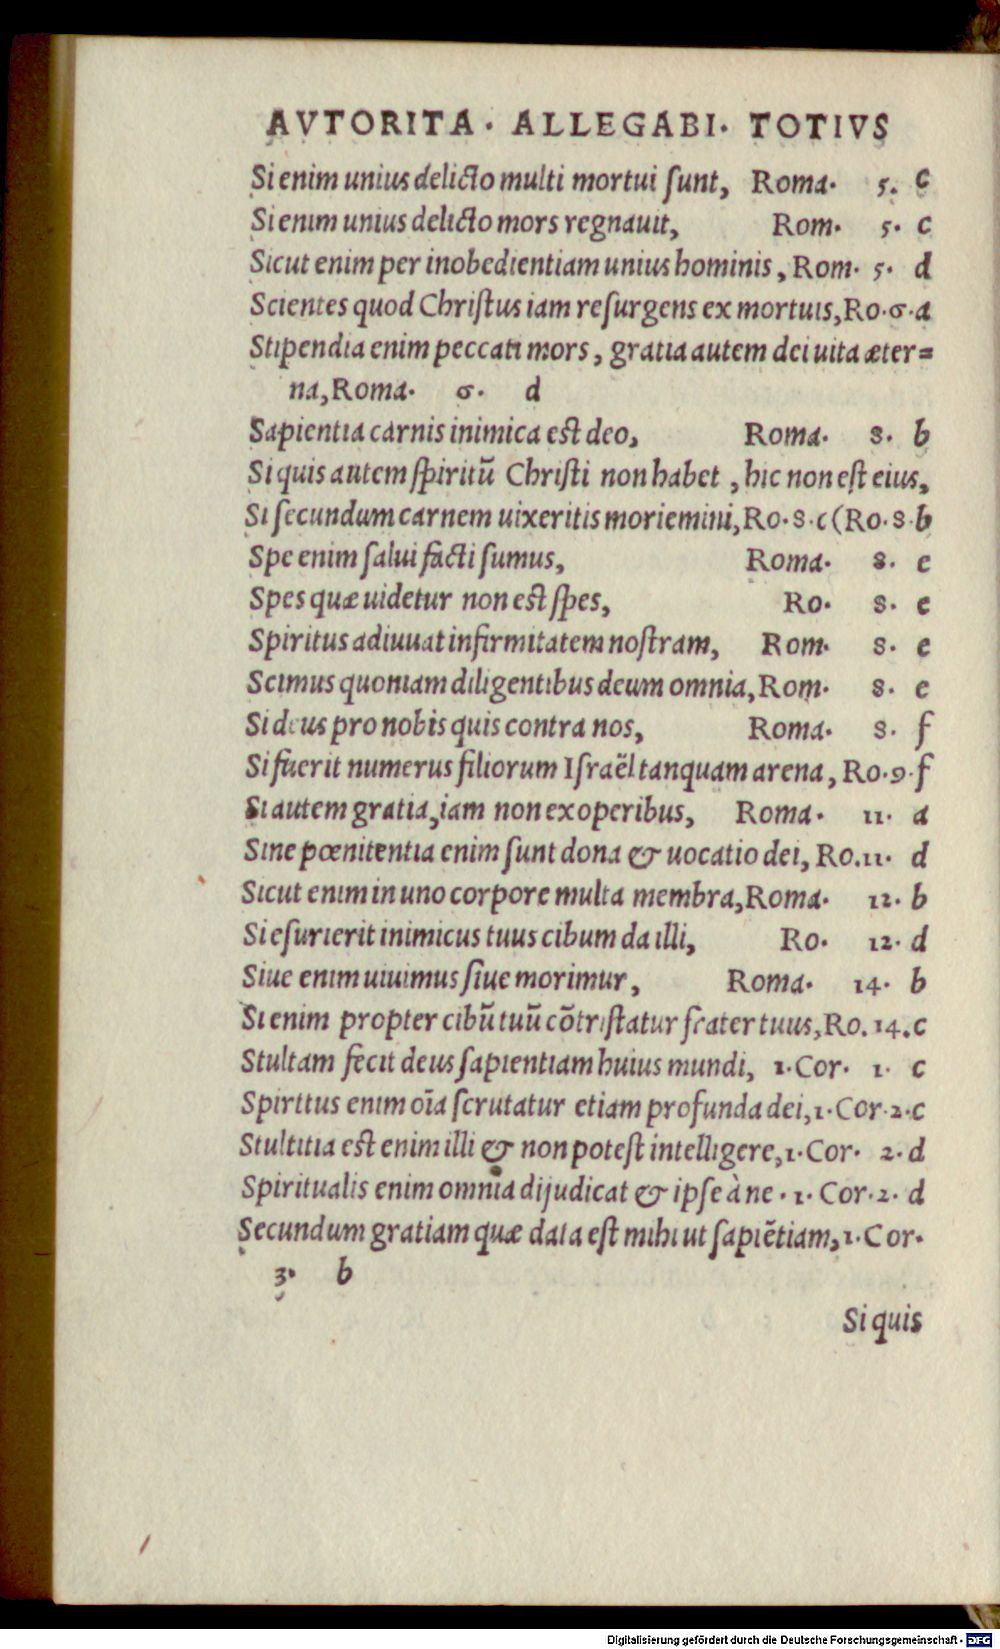 AVTORITA. ALLEGABI. TOTIVS
Si enim unius delicto multi mortui ſunt, Roma. 5. c
Si enim unius delicto mors regnauit, Rom. 5. c
Sicut enim per inobedientiam unius hominis, Rom. 5. d
Scientes quod Chriſtus iam reſurgens ex mortuis, Ro.6.a
Stipendia enim peccati mors, gratia autem dei uita æter=
na, Roma. 6. d
Sapientia carnis inimica eſt deo, Roma. 8. b
Si quis autem ſpiritū Chriſti non habet, hic non eſt eius,
Si ſecundum carnem uixeritis moriemini, Ro.8.c (Ro.8.b
Spe enim ſalui facti ſumus, Roma. 8. e
Spes quæ uidetur non eſt ſpes, Ro. 8. e
Spiritus adiuuat infirmitatem noſtram, Rom. 8. e
Scimus quoniam diligentibus deum omnia, Rom. 8. e
Si deus pro nobis quis contra nos, Roma. 8. f
Si fuerit numerus filiorum Iſraël tanquam arena, Ro.9.f
Si autem gratia, iam non ex operibus, Roma. 11. a
Sine pœnitentia enim ſunt dona & uocatio dei, Ro.11. d
Sicut enim in uno corpore multa membra, Roma. 12. b
Si eſurierit inimicus tuus cibum da illi, Ro. 12. d
Siue enim uiuimus ſiue morimur, Roma. 14. b
Si enim propter cibū tuū cōtriſtatur frater tuus, Ro. 14.c
Stultam fecit deus ſapientiam huius mundi, 1.Cor. 1. c
Spiritus enim oīa ſcrutatur etiam profunda dei, 1.Cor.2.c
Stultitia eſt enim illi & non poteſt intelligere, 1.Cor. 2.d
Spiritualis enim omnia dijudicat & ipſe à ne. 1. Cor.2. d
Secundum gratiam quæ data eſt mihi ut ſapiētiam, 1.Cor.
3. b
Si quis
Digitalisierung gefördert durch die Deutsche Forschungsgemeinschaft - DFG